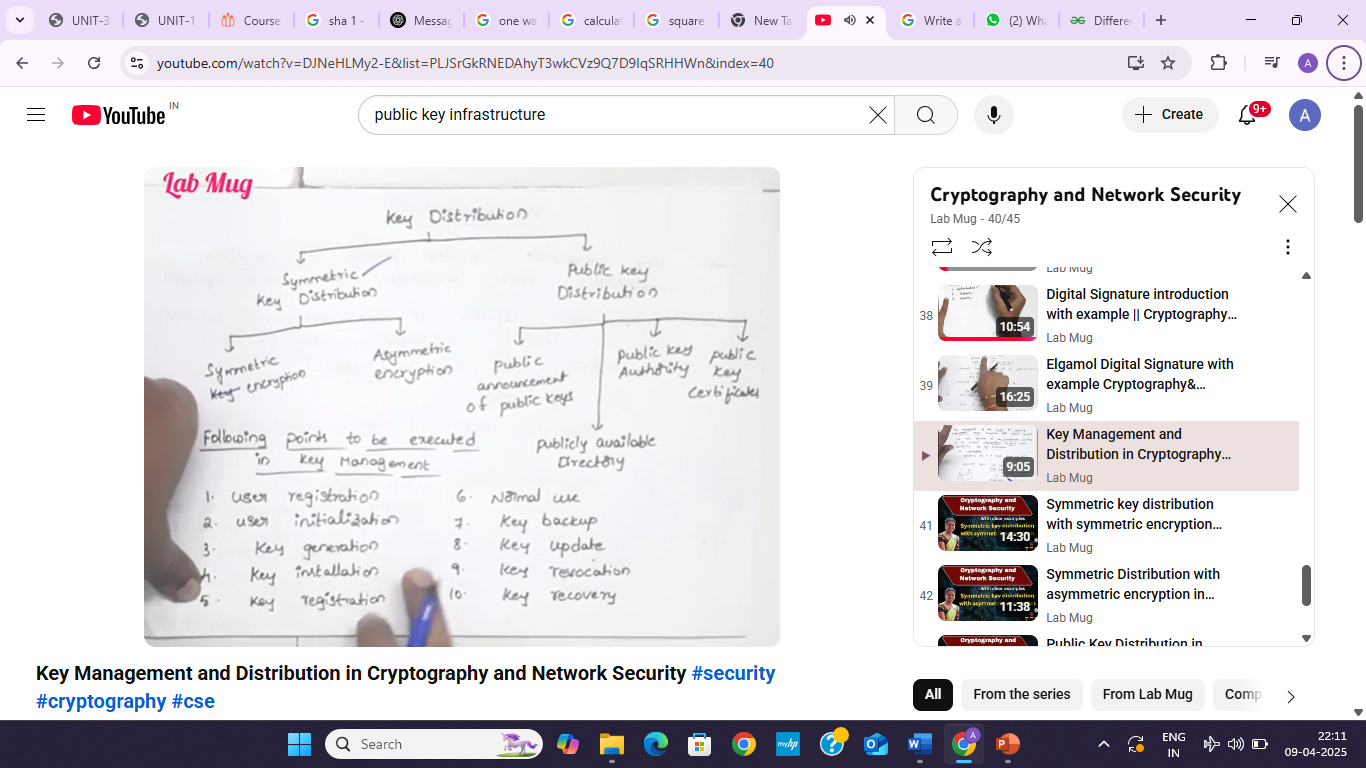 UNIT-3
UNIT-1
Course
sha 1 -
Messag
one wa
calculat
square
New Ta
Write a
(2) Wha
Differen
youtube.com/watch?v=DJNeHLMy2-E&list=PLJSrGkRNEDAhyT3wkCVz9Q7D9IqSRHHWn&index=40
A
YouTube IN
public key infrastructure
Create
9+
A
Lab Mug
Key Distribution
Symmetric
Key Distribution
Public key
Distribution
Symmetric
key encryption
Asymmetric
encryption
public
announcement
of public keys
public key
Authority
public
key
certificates
publicly available
Directory
Following points to be executed
in key Management
1. user registration
2. user initialization
3. Key generation
4. Key installation
5. Key registration
6. Normal use
7. Key backup
8. Key update
9. Key revocation
10. Key recovery
Key Management and Distribution in Cryptography and Network Security #security
#cryptography #cse
Cryptography and Network Security
Lab Mug - 40/45
Lab Mug
38
10:54
Digital Signature introduction
with example || Cryptography...
Lab Mug
39
16:25
Elgamol Digital Signature with
example Cryptography&...
Lab Mug
9:05
Key Management and
Distribution in Cryptography...
Lab Mug
41
Cryptography and
Network Security
With clear examples
Symmetric key distribution
with symmetric encryption
14:30
Symmetric key distribution
with symmetric encryption...
Lab Mug
42
Cryptography and
Network Security
Symmetric key distribution
with asymmetric encryption
11:38
Symmetric Distribution with
asymmetric encryption in...
Lab Mug
Cryptography and
Public Key Distribution in
All
From the series
From Lab Mug
Comp
Search
ENG
IN
22:11
09-04-2025